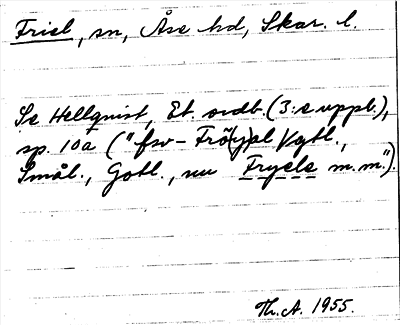 Friel, sn, Åse hd, Skar. l.
Se Hellquist, Et. ordb. (3:e uppl.),
sp. 10a ("fsv- Frö(y)el Vgtl.,
Smål., Gotl., nu Fryele m.m.").
Th. A. 1955.